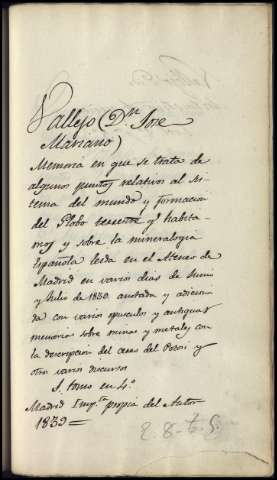 Vallejo (Dn. Jose
Mariano)
Memoria en que se trata de
algunos puntos relativos al Sis
tema del mundo y formacion
del Globo terrestre q habita
mos y sobre la mineralogia
Española leida en el Ateneo de
Madrid en varios dias de Junio
y Julio de 1830. anotada y adiciona
da con varios opusculos y antiguas
memorias sobre minas y metales con
la descripcion del cerro del Potosi y
otros varios discursos
1. tomo en 4.º
Madrid Imp.ta propia del Autor
1839=